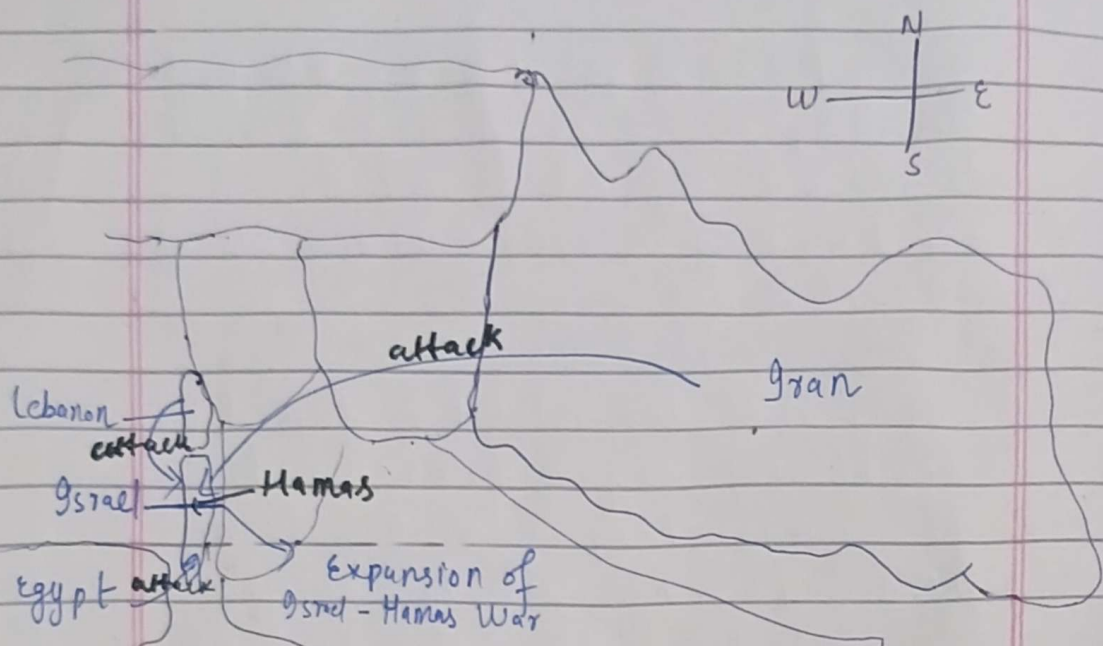 N
W E
S
attack
Iran
Lebanon
attack
Israel
Hamas
Egypt attack
Expansion of
Israel - Hamas War